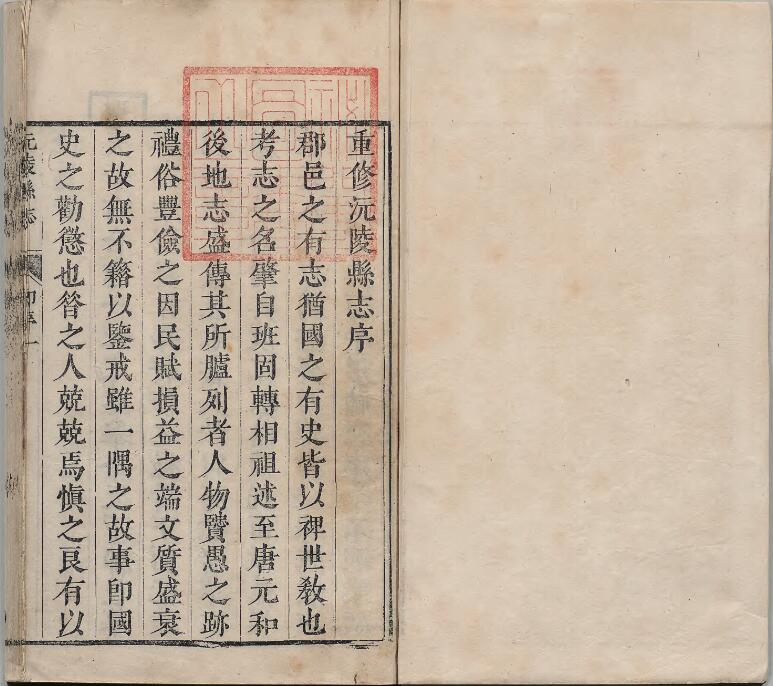 重修沅陵縣志序
郡邑之有志猶國之有史皆以裨世教也
考志之名肇自班固轉相祖述至唐元和
後地志盛傳其所臚列者人物賢愚之跡
禮俗豐儉之因民賦損益之端文質盛衰
之故無不籍以鑒戒雖一隅之故事即國
史之勸懲也昝之人兢兢焉慎之良有以
沅陵縣志